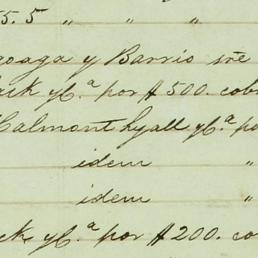 55.5 " " "
goaga y Barrio sre
ack y Cª por $500. cob
Halmont Lyall y Cª po
idem "
idem "
ck y Cª por $200. co